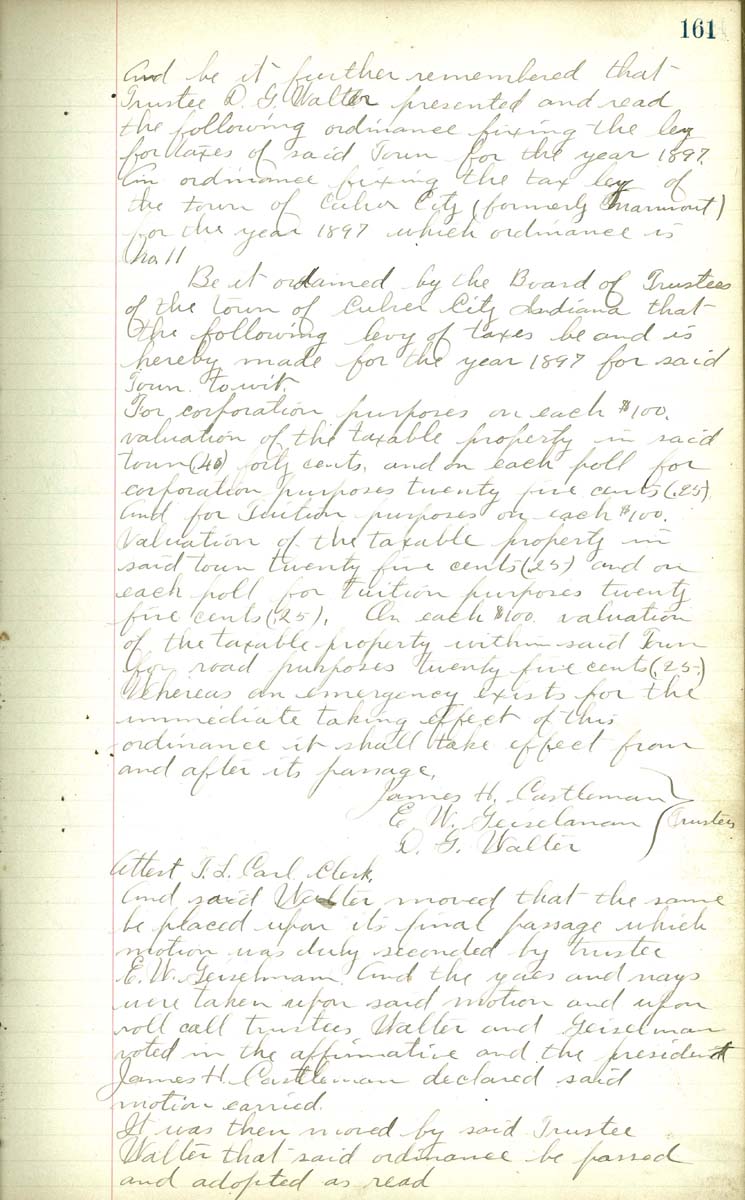 161
And be it further remembered that
Trustee D. G. Walter presented and read
the following ordinance fixing the levy
for taxes of said Town for the year 1897.
An ordinance fixing the tax levy of
the town of Culver City (formerly Marmont)
for the year 1897 which ordinance is
No. 11
Be it ordained by the Board of Trustees
of the town of Culver City Indiana that
the following levy of taxes be and is
hereby made for the year 1897 for said
Town. towit.
For corporation purposes on each $100.
valuation of the taxable property in said
town (.40) forty cents, and on each poll for
corporation purposes twenty five cents (.25)
And for Tuition purposes on each $100.
Valuation of the taxable property in
said town twenty five cents (.25) and on
each poll for tuition purposes twenty
five cents (.25). On each $100. valuation
of the taxable property within said Town
for road purposes twenty five cents (.25.)
Whereas an emergency exists for the
immediate taking effect of this
ordinance it shall take effect from
and after its passage.
James H. Castleman
E. W. Geiselman } Trustees
D. G. Walter
Attest T. L. Carl Clerk.
And said Walter moved that the same
be placed upon its final passage which
motion was duly seconded by trustee
E. W. Geiselman. And the yaes and nays
were taken upon said motion and upon
roll call trustees Walter and Geiselman
voted in the affirmative and the president
James H. Castleman declared said
motion carried.
It was then moved by said Trustee
Walter that said ordinance be passed
and adopted as read